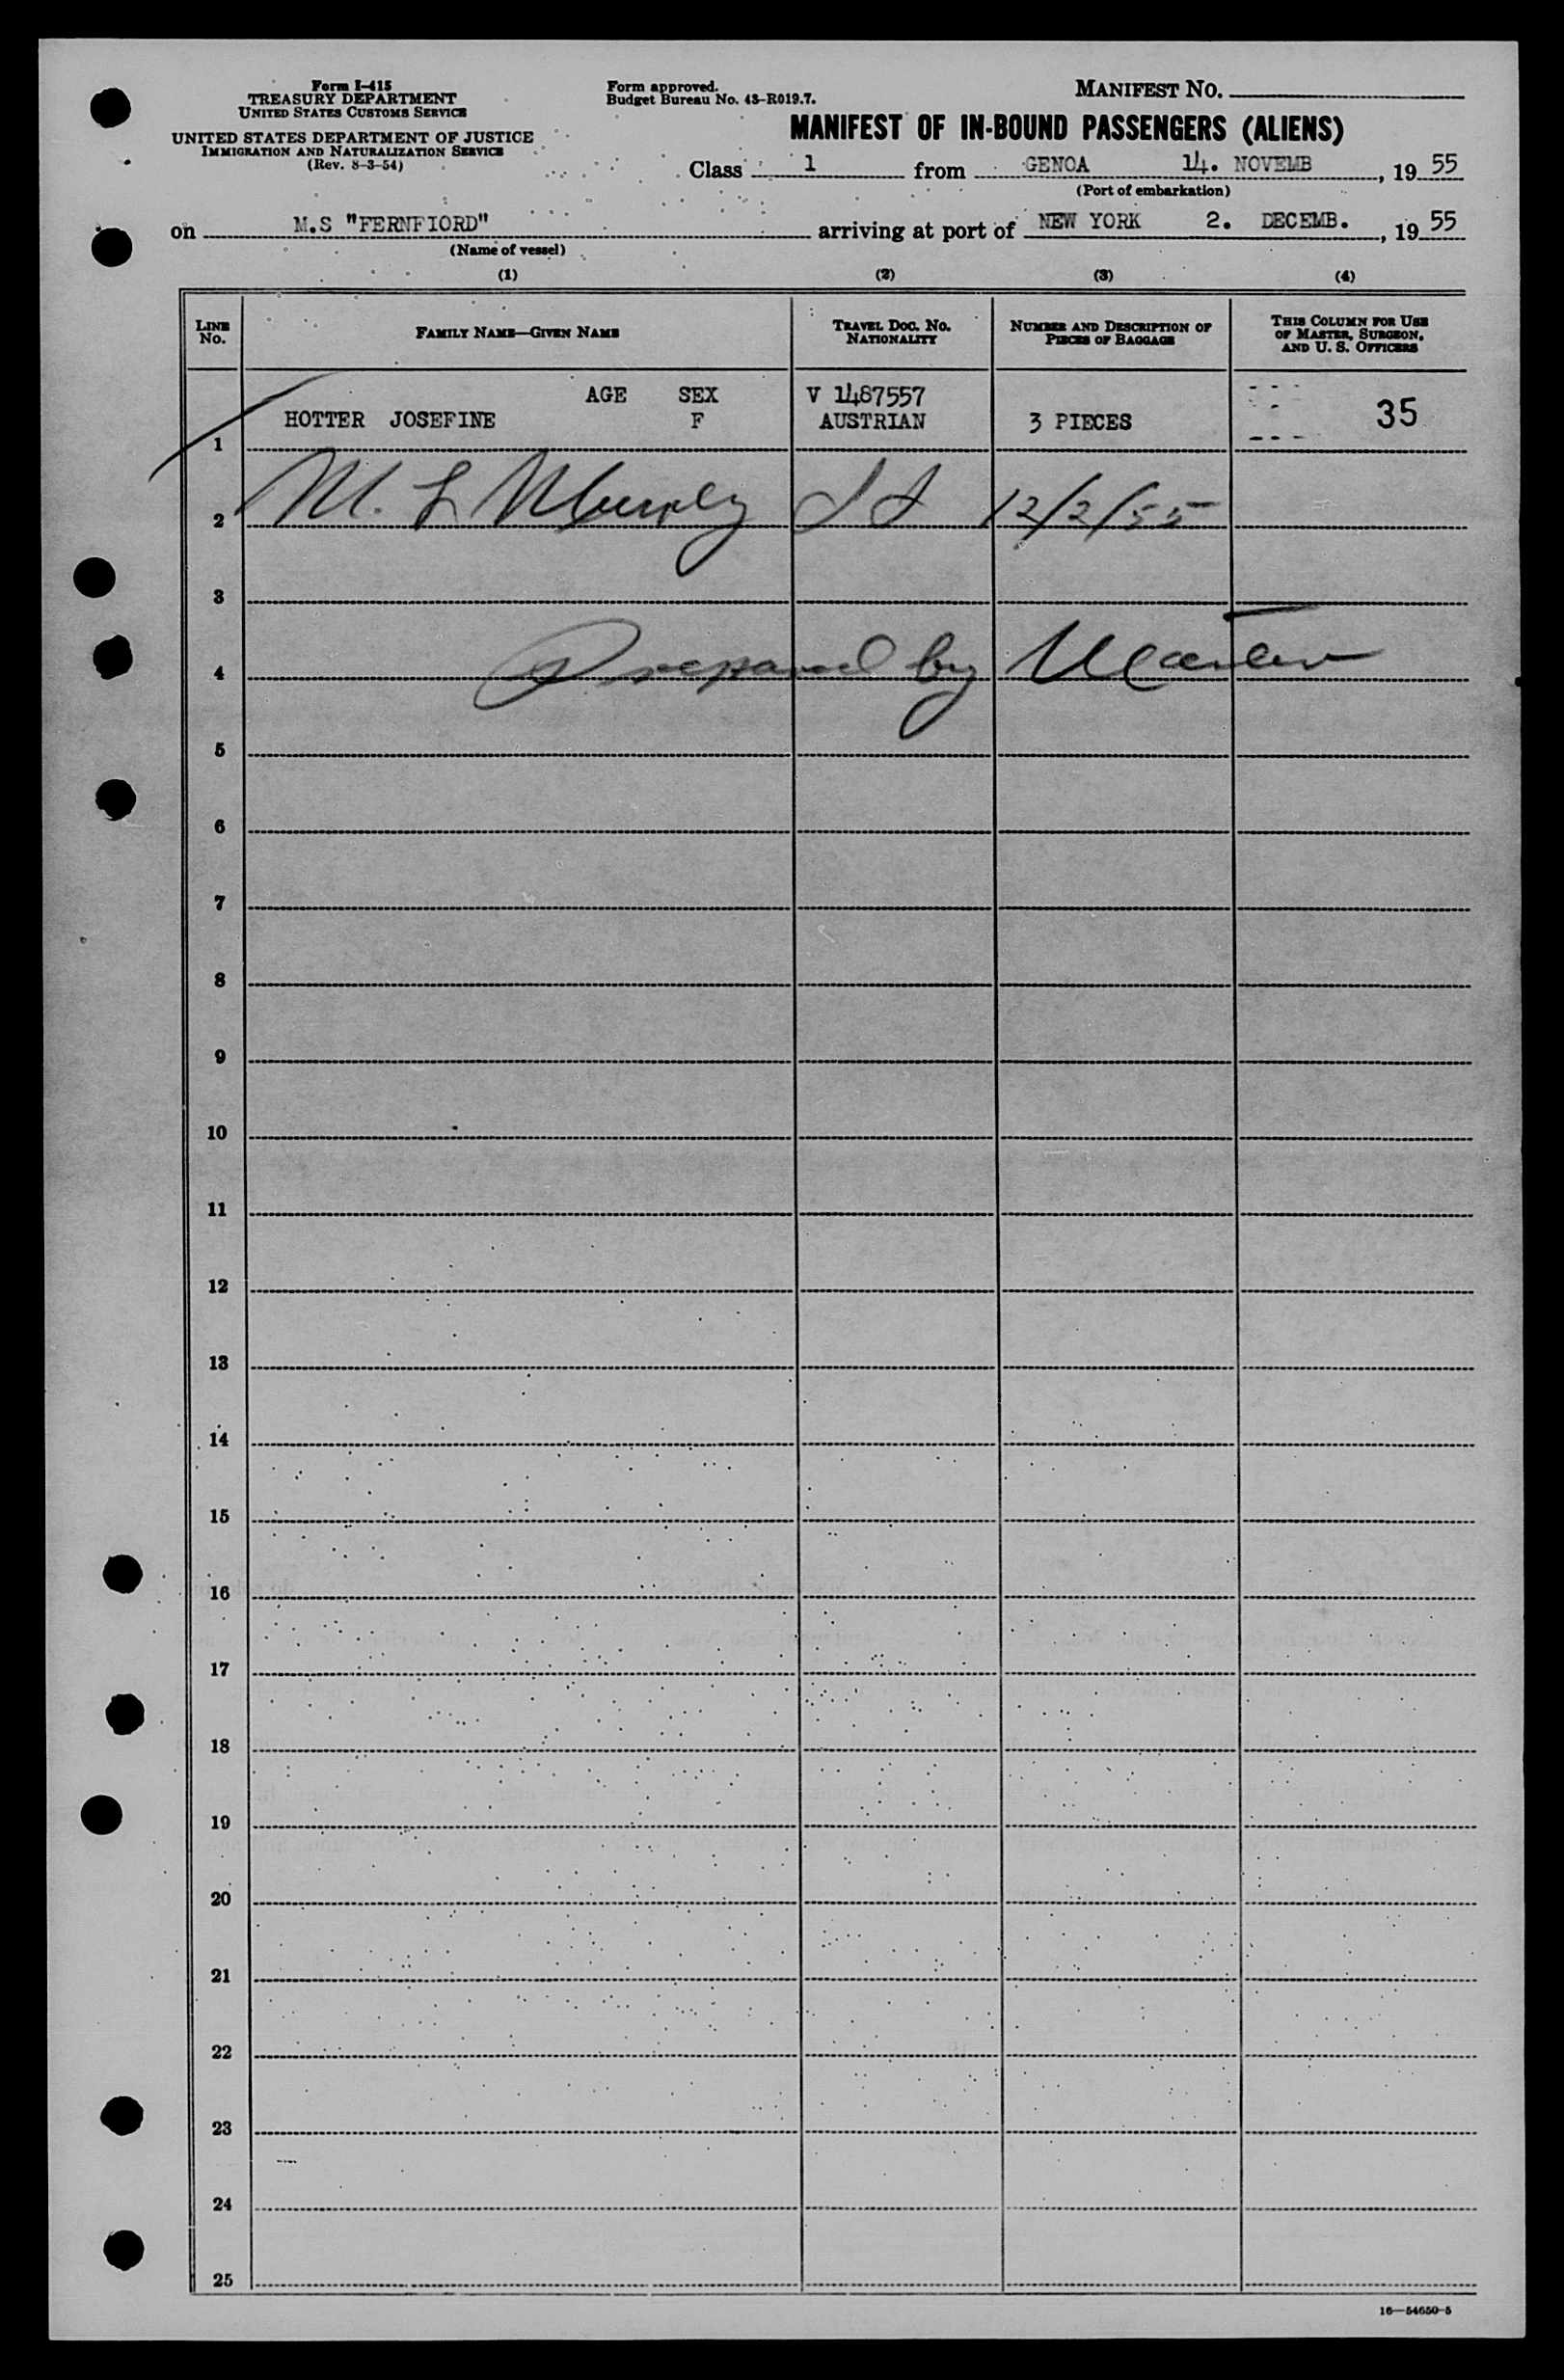 Form I-415
TREASURY DEPARTMENT
UNITED STATES CUSTOMS SERVICE
UNITED STATES DEPARTMENT OF JUSTICE
IMMIGRATION AND NATURALIZATION SERVICE
(Rev. 8-3-54)
Form approved.
Budget Bureau No. 43-R019.7.
MANIFEST NO.
MANIFEST OF IN-BOUND PASSENGERS (ALIENS)
Class 1 from GENOA 14. NOVEMB, 19 55
(Port of embarkation)
on M.S "FERNFIORD" arriving at port of NEW YORK 2. DECEMB., 19 55
(Name of vessel)
(1) (2) (3) (4)
LINE No. FAMILY NAME—GIVEN NAME TRAVEL DOC. NO. NATIONALITY NUMBER AND DESCRIPTION OF PIECES OF BAGGAGE THIS COLUMN FOR USE OF MASTER, SURGEON, AND U. S. OFFICERS
AGE SEX V 1487557
HOTTER JOSEFINE F AUSTRIAN 3 PIECES 35
1
2 M. L Murphy 12/2/55
3
4 Prepared by Master
5
6
7
8
9
10
11
12
13
14
15
16
17
18
19
20
21
22
23
24
25
16—54650-5